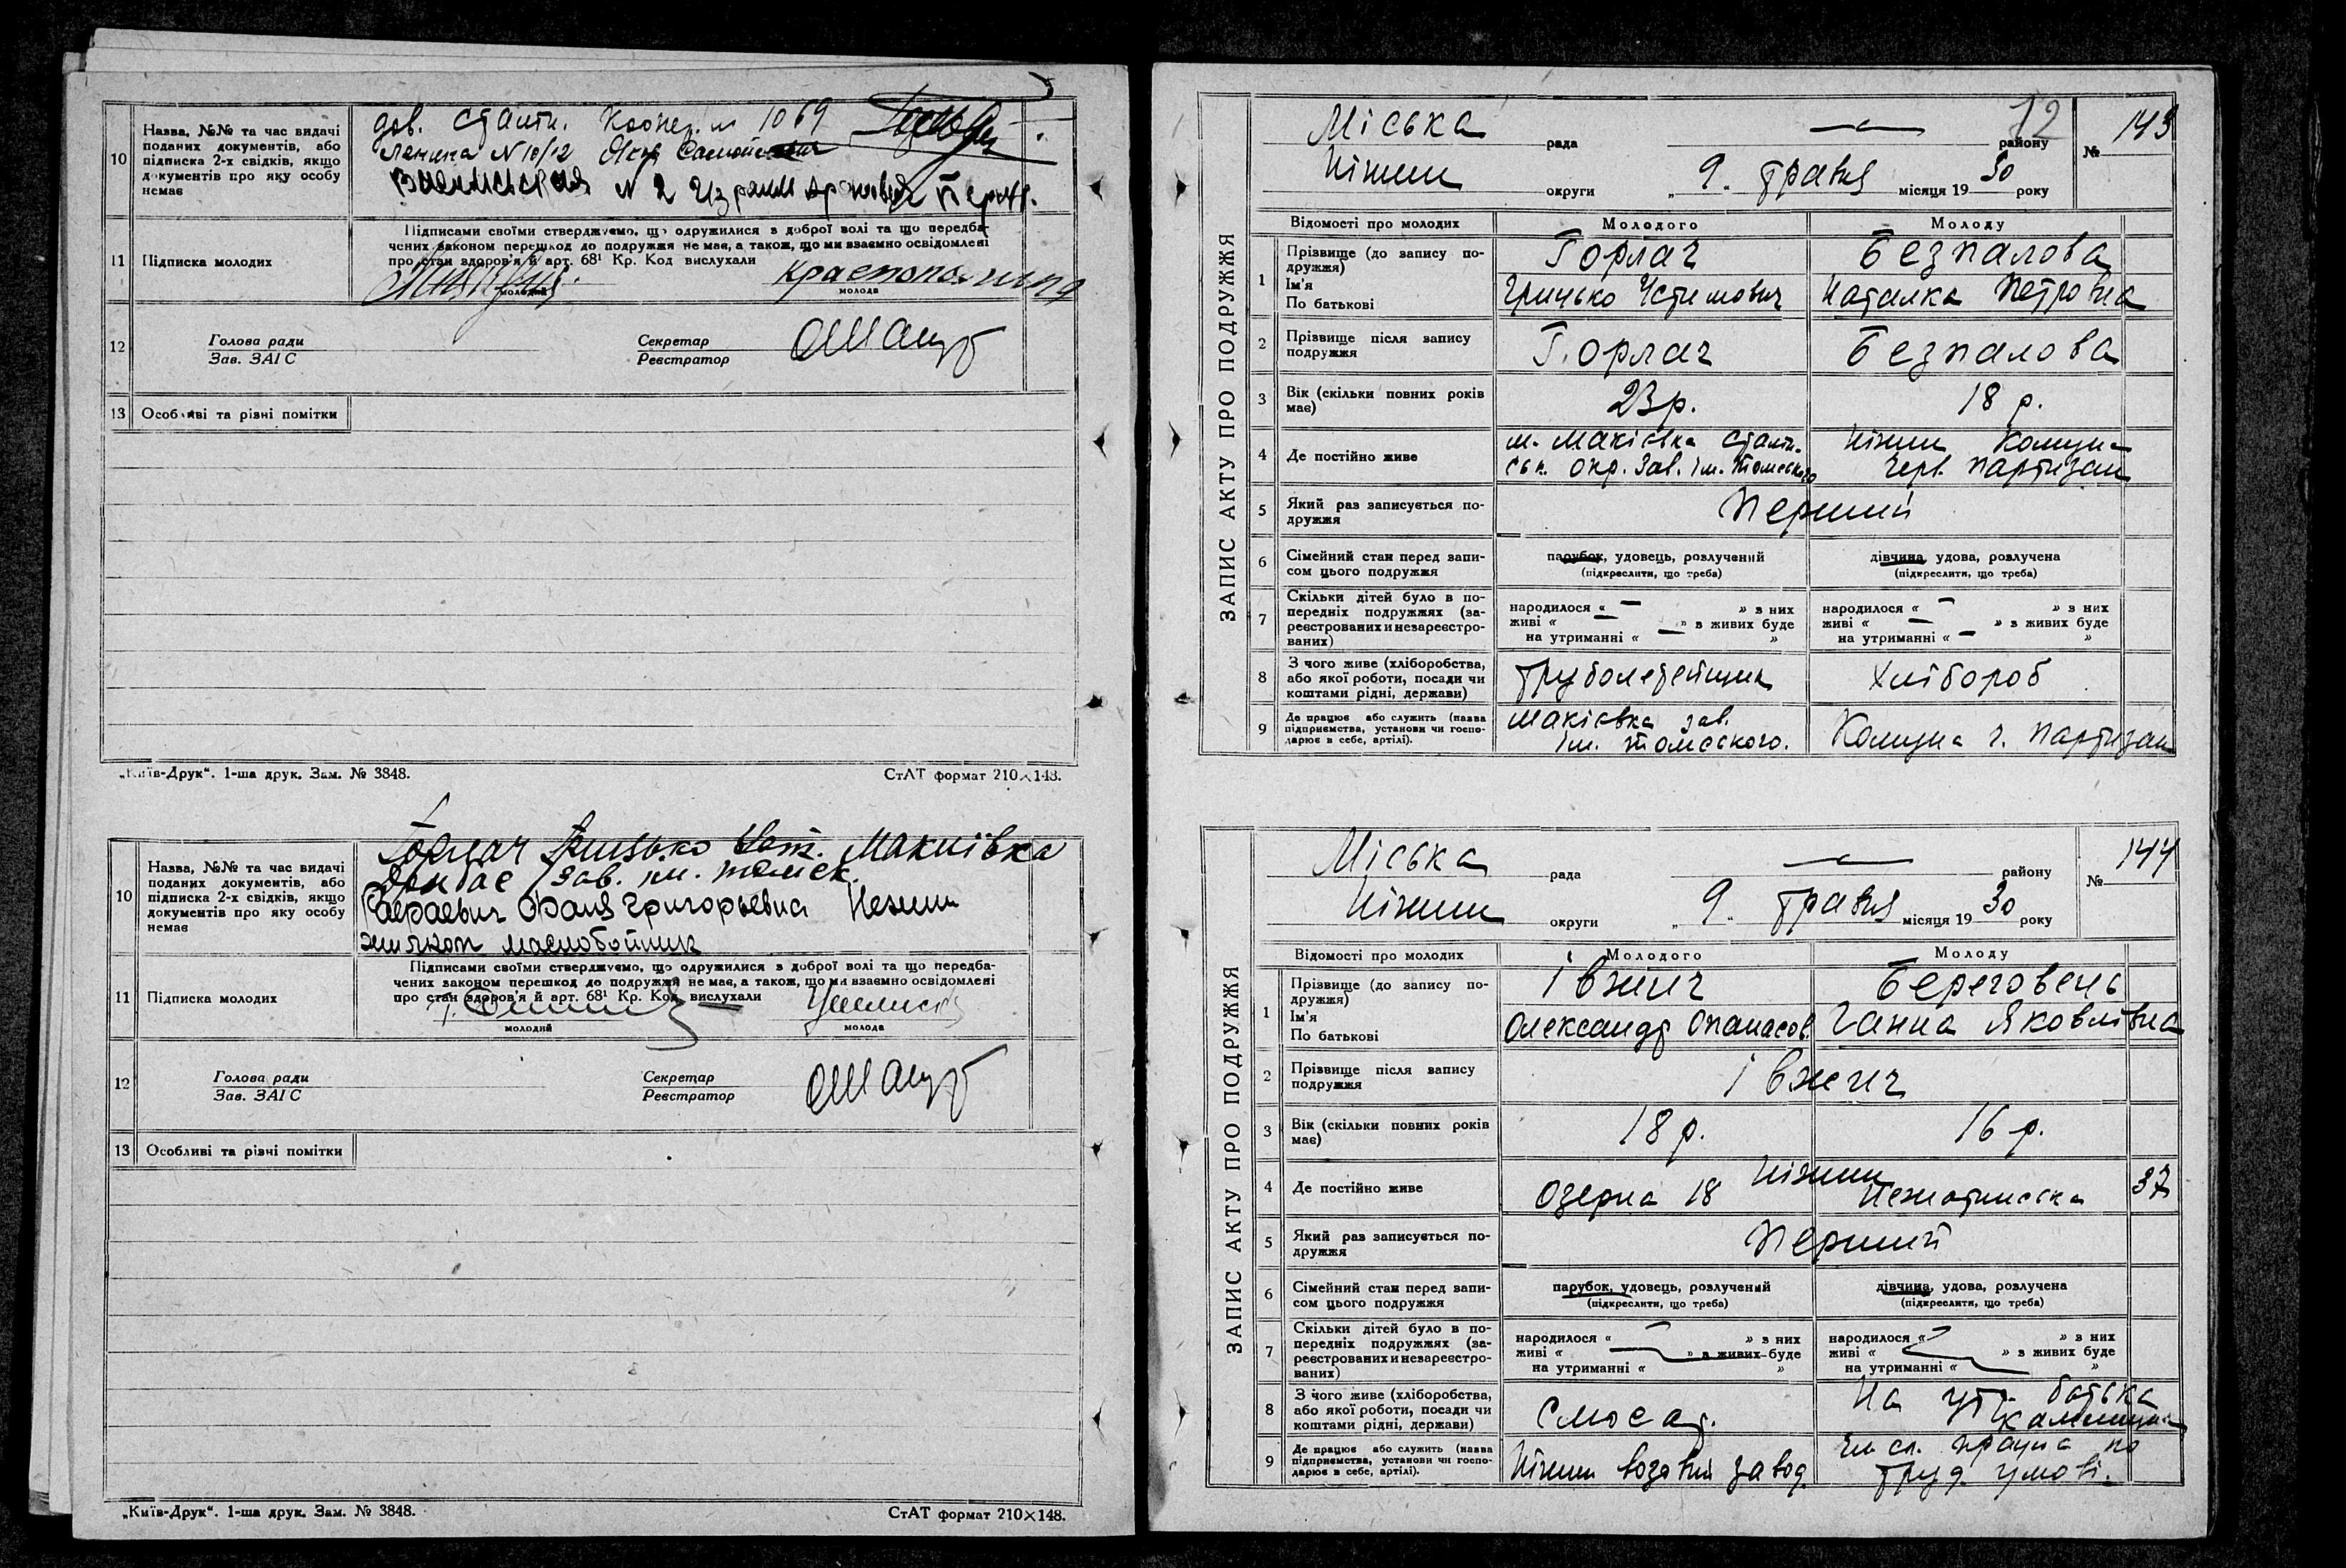 10 Назва, №№ та час видачі
поданих документів, або
підписка 2-х свідків, якщо
документів про яку особу
немає
дов. Сталін. Кооper. № 1069
Леніна N 10/12
N 2
11 Підписка молодих
Підписами своїми стверджуємо, що одружилися з доброї волі та що передба-
чених законом перешкод до подружжя не має, а також, що ми взаємно освідомлені
про стан здоров'я й арт. 68¹ Кр. Код вислухали
молодий
молода
12 Голова ради
Зав. ЗАІС
Секретар
Реєстратор
13 Особливі та рівні помітки
„Київ-Друк“. 1-ша друк. Зам. № 3848.
СтАТ формат 210×148.
10 Назва, №№ та час видачі
поданих документів, або
підписка 2-х свідків, якщо
документів про яку особу
немає
Горлач Грицько Уст. Макиївка
Донбас зав. ім. Томск.
Григорьевна Нежин
маслобойщик
11 Підписка молодих
Підписами своїми стверджуємо, що одружилися з доброї волі та що передба-
чених законом перешкод до подружжя не має, а також, що ми взаємно освідомлені
про стан здоров'я й арт. 68¹ Кр. Код вислухали
молодий
молода
12 Голова ради
Зав. ЗАІС
Секретар
Реєстратор
13 Особливі та рівні помітки
„Київ-Друк“. 1-ша друк. Зам. № 3848.
СтАТ формат 210×148.
12
ЗАПИС АКТУ ПРО ПОДРУЖЖЯ
Міська рада — району № 143
Ніжин округи „ 9 „ травня місяця 1930 року
Відомості про молодих Молодого Молоду
1 Прізвище (до запису по-
дружжя) Горлач Безпалова
Ім'я
По батькові Грицько Устимович Наталка Петровна
2 Прізвище після запису
подружжя Горлач Безпалова
3 Вік (скільки повних років
має) 23 р. 18 р.
4 Де постійно живе м. Макієвка Сталін-
ськ. окр. Зав. ім. Томського
Ніжин Комуна
Черв. партизан
5 Який раз записується по-
дружжя Перший
6 Сімейний стан перед запи-
сом цього подружжя
парубок, удовець, розлучений
(підкреслити, що треба)
дівчина, удова, розлучена
(підкреслити, що треба)
7 Скільки дітей було в по-
передніх подружжях (за-
реєстрованих и незареєстро-
ваних)
народилося « — » з них
живі « — » з живих буде
на утриманні « — »
народилося « — » з них
живі « — » з живих буде
на утриманні « — »
8 З чого живе (хліборобства,
або якої роботи, посади чи
коштами рідні, держави)
труболетейщик Хлібороб
9 Де працює або служить (назва
підприємства, установи чи госпо-
дарює в себе, артілі).
Макієвка зав.
ім. Томського.
Комуна ч. партизан
ЗАПИС АКТУ ПРО ПОДРУЖЖЯ
Міська рада — району № 144
Ніжин округи „ 9 „ травня місяця 1930 року
Відомості про молодих Молодого Молоду
1 Прізвище (до запису по-
дружжя) Івжич Береговець
Ім'я
По батькові Олександр Опанасов. Ганна Яковлівна
2 Прізвище після запису
подружжя Івжич
3 Вік (скільки повних років
має) 18 р. 16 р.
4 Де постійно живе Ніжин
Озерна 18 37
5 Який раз записується по-
дружжя Перший
6 Сімейний стан перед запи-
сом цього подружжя
парубок, удовець, розлучений
(підкреслити, що треба)
дівчина, удова, розлучена
(підкреслити, що треба)
7 Скільки дітей було в по-
передніх подружжях (за-
реєстрованих и незареєстро-
ваних)
народилося « » з них
живі « » з живих буде
на утриманні « »
народилося « » з них
живі « » з живих буде
на утриманні « »
8 З чого живе (хліборобства,
або якої роботи, посади чи
коштами рідні, держави)
Слюсар.
На утр. батька
9 Де працює або служить (назва
підприємства, установи чи госпо-
дарює в себе, артілі).
Ніжин завод.
працює по
труд. умові.